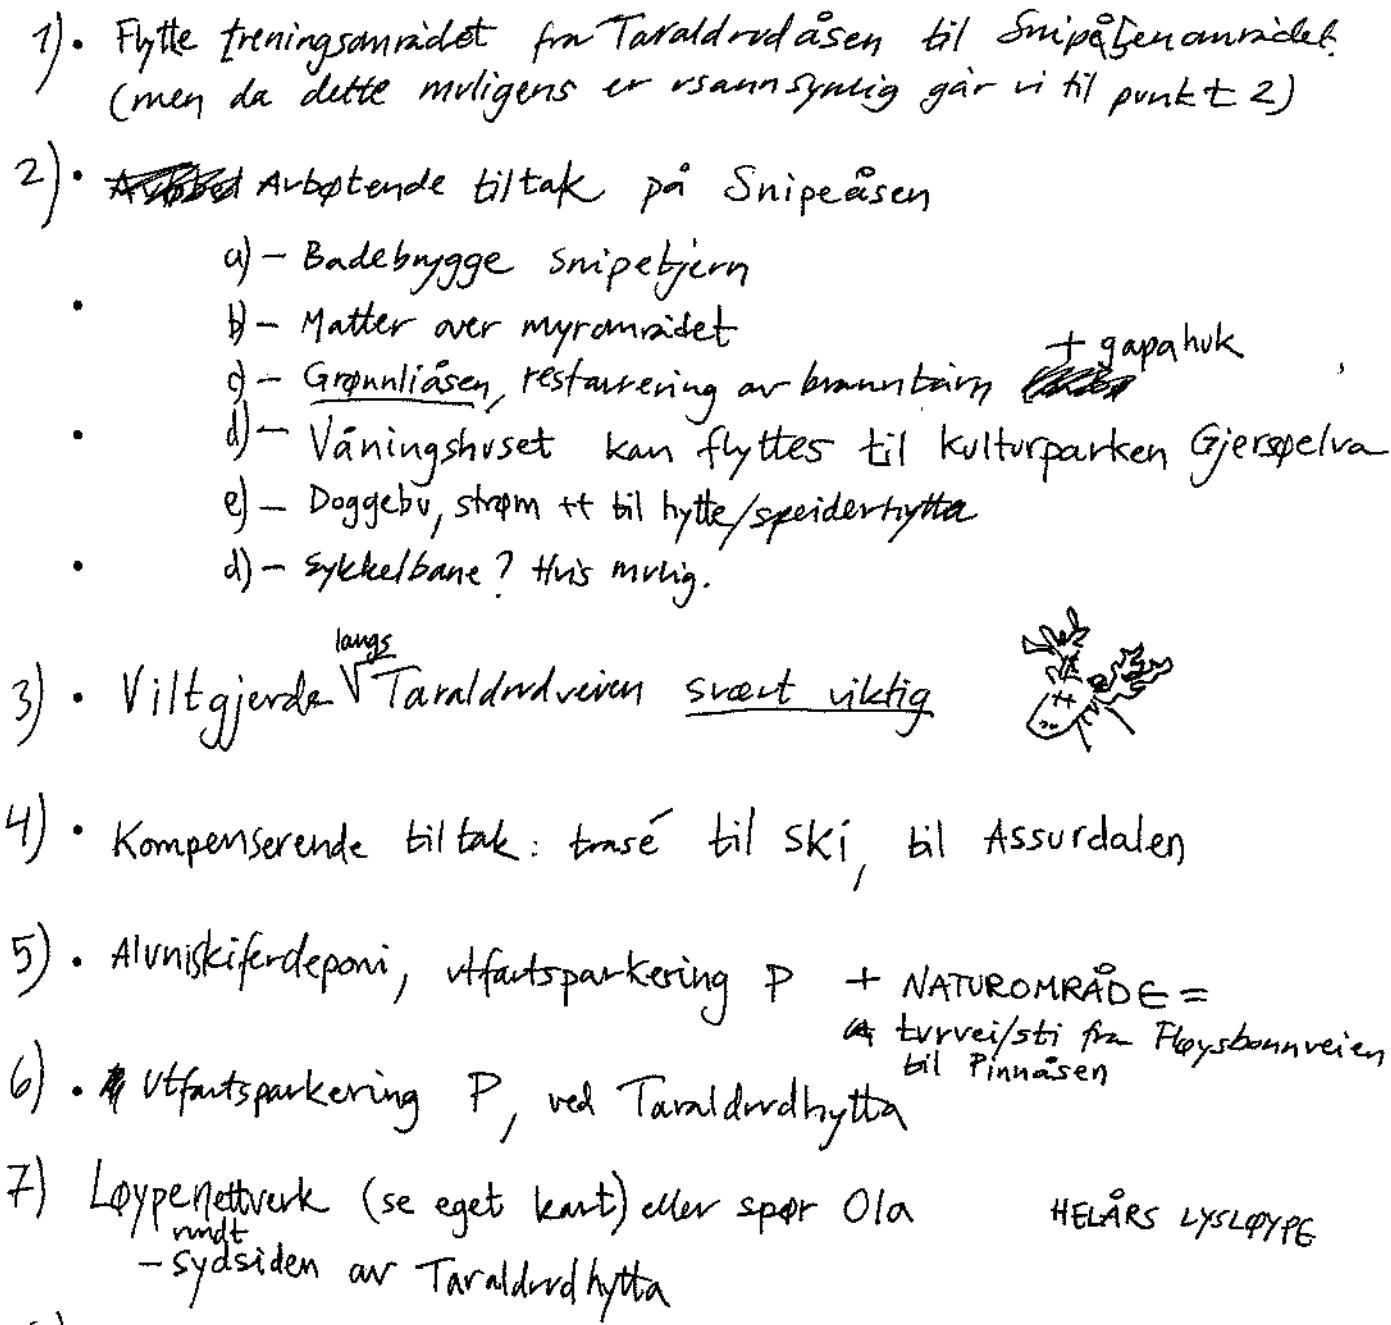 1) • Flytte treningsområdet fra Taraldrudåsen til Snipåsenområdet.
(men da dette muligens er usannsynlig går vi til punkt 2)
2) • Avbøtende tiltak på Snipeåsen
a) – Badebrygge Snipetjern
• b) – Matter over myrområdet
+ gapahuk
c) – Grønnliåsen, restaurering av branntårn
• d) – Våningshuset kan flyttes til kulturparken Gjersjøelva
e) – Doggebu, strøm ++ til hytte/speiderhytta
• d) – Sykkelbane? Hvis mulig.
langs
3) • Viltgjerde √ Taraldrudveien svært viktig
4) • Kompenserende tiltak: trasé til Ski, til Assurdalen
5) • Alunskiferdeponi, utfartsparkering P + NATUROMRÅDE =
turvei/sti fra Fløysbonnveien
til Pinnåsen
6) • Utfartsparkering P, ved Taraldrudhytta
7) Løypenettverk (se eget kart) eller spør Ola HELÅRS LYSLØYPE
rundt
– Sydsiden av Taraldrudhytta